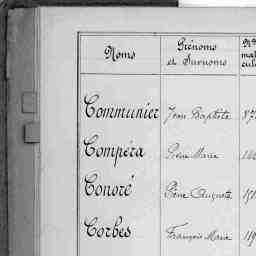 Noms Prénoms et Surnoms
Communier Jean Baptiste
Compéra Pierre Marie
Conoré Pierre Auguste
Corbes François Marie